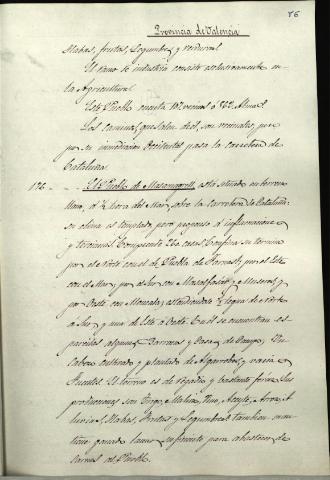 76
Provincia de Valencia
Habas, frutas, Legumbres y verduras.
El ramo de industria consiste esclusivamente en
la Agricultura.
Este Pueblo cuenta 192 vecinos ó 862 Almas.
Los caminos que salen de él, son vecinales, pero
por su inmediacion Occidental pasa la carretera de
Cataluña.
El Pueblo de Masamagrell, está situado en terreno
llano, á ½ hora del Mar, sobre la Carretera de Cataluña:
su clima es templado, pero propenso á inflamaciones
y tercianas. Comprende 260 casas. Confina su termino
por el Norte con el de Puebla de Farnals; por el Este
con el Mar; por el Sur con Masalfasar y Museros; y
por Oeste con Moncada; estendiendose ½ legua de Norte
a Sur y una de Este á Oeste. En él se encuentran es-
parcidas algunas Barracas y Casas de Campo, Un
Calvario cultivado y plantado de Algarrobos, y varias
Fuentes. El terreno es de regadío y bastante feraz. Sus
producciones son Trigo, Maiz, Vino, Aceyte, Arroz, A-
lubias, Habas, Frutas y Legumbres: tambien man-
tiene ganado lanar suficiente para abastecer de
Carnes al Pueblo.